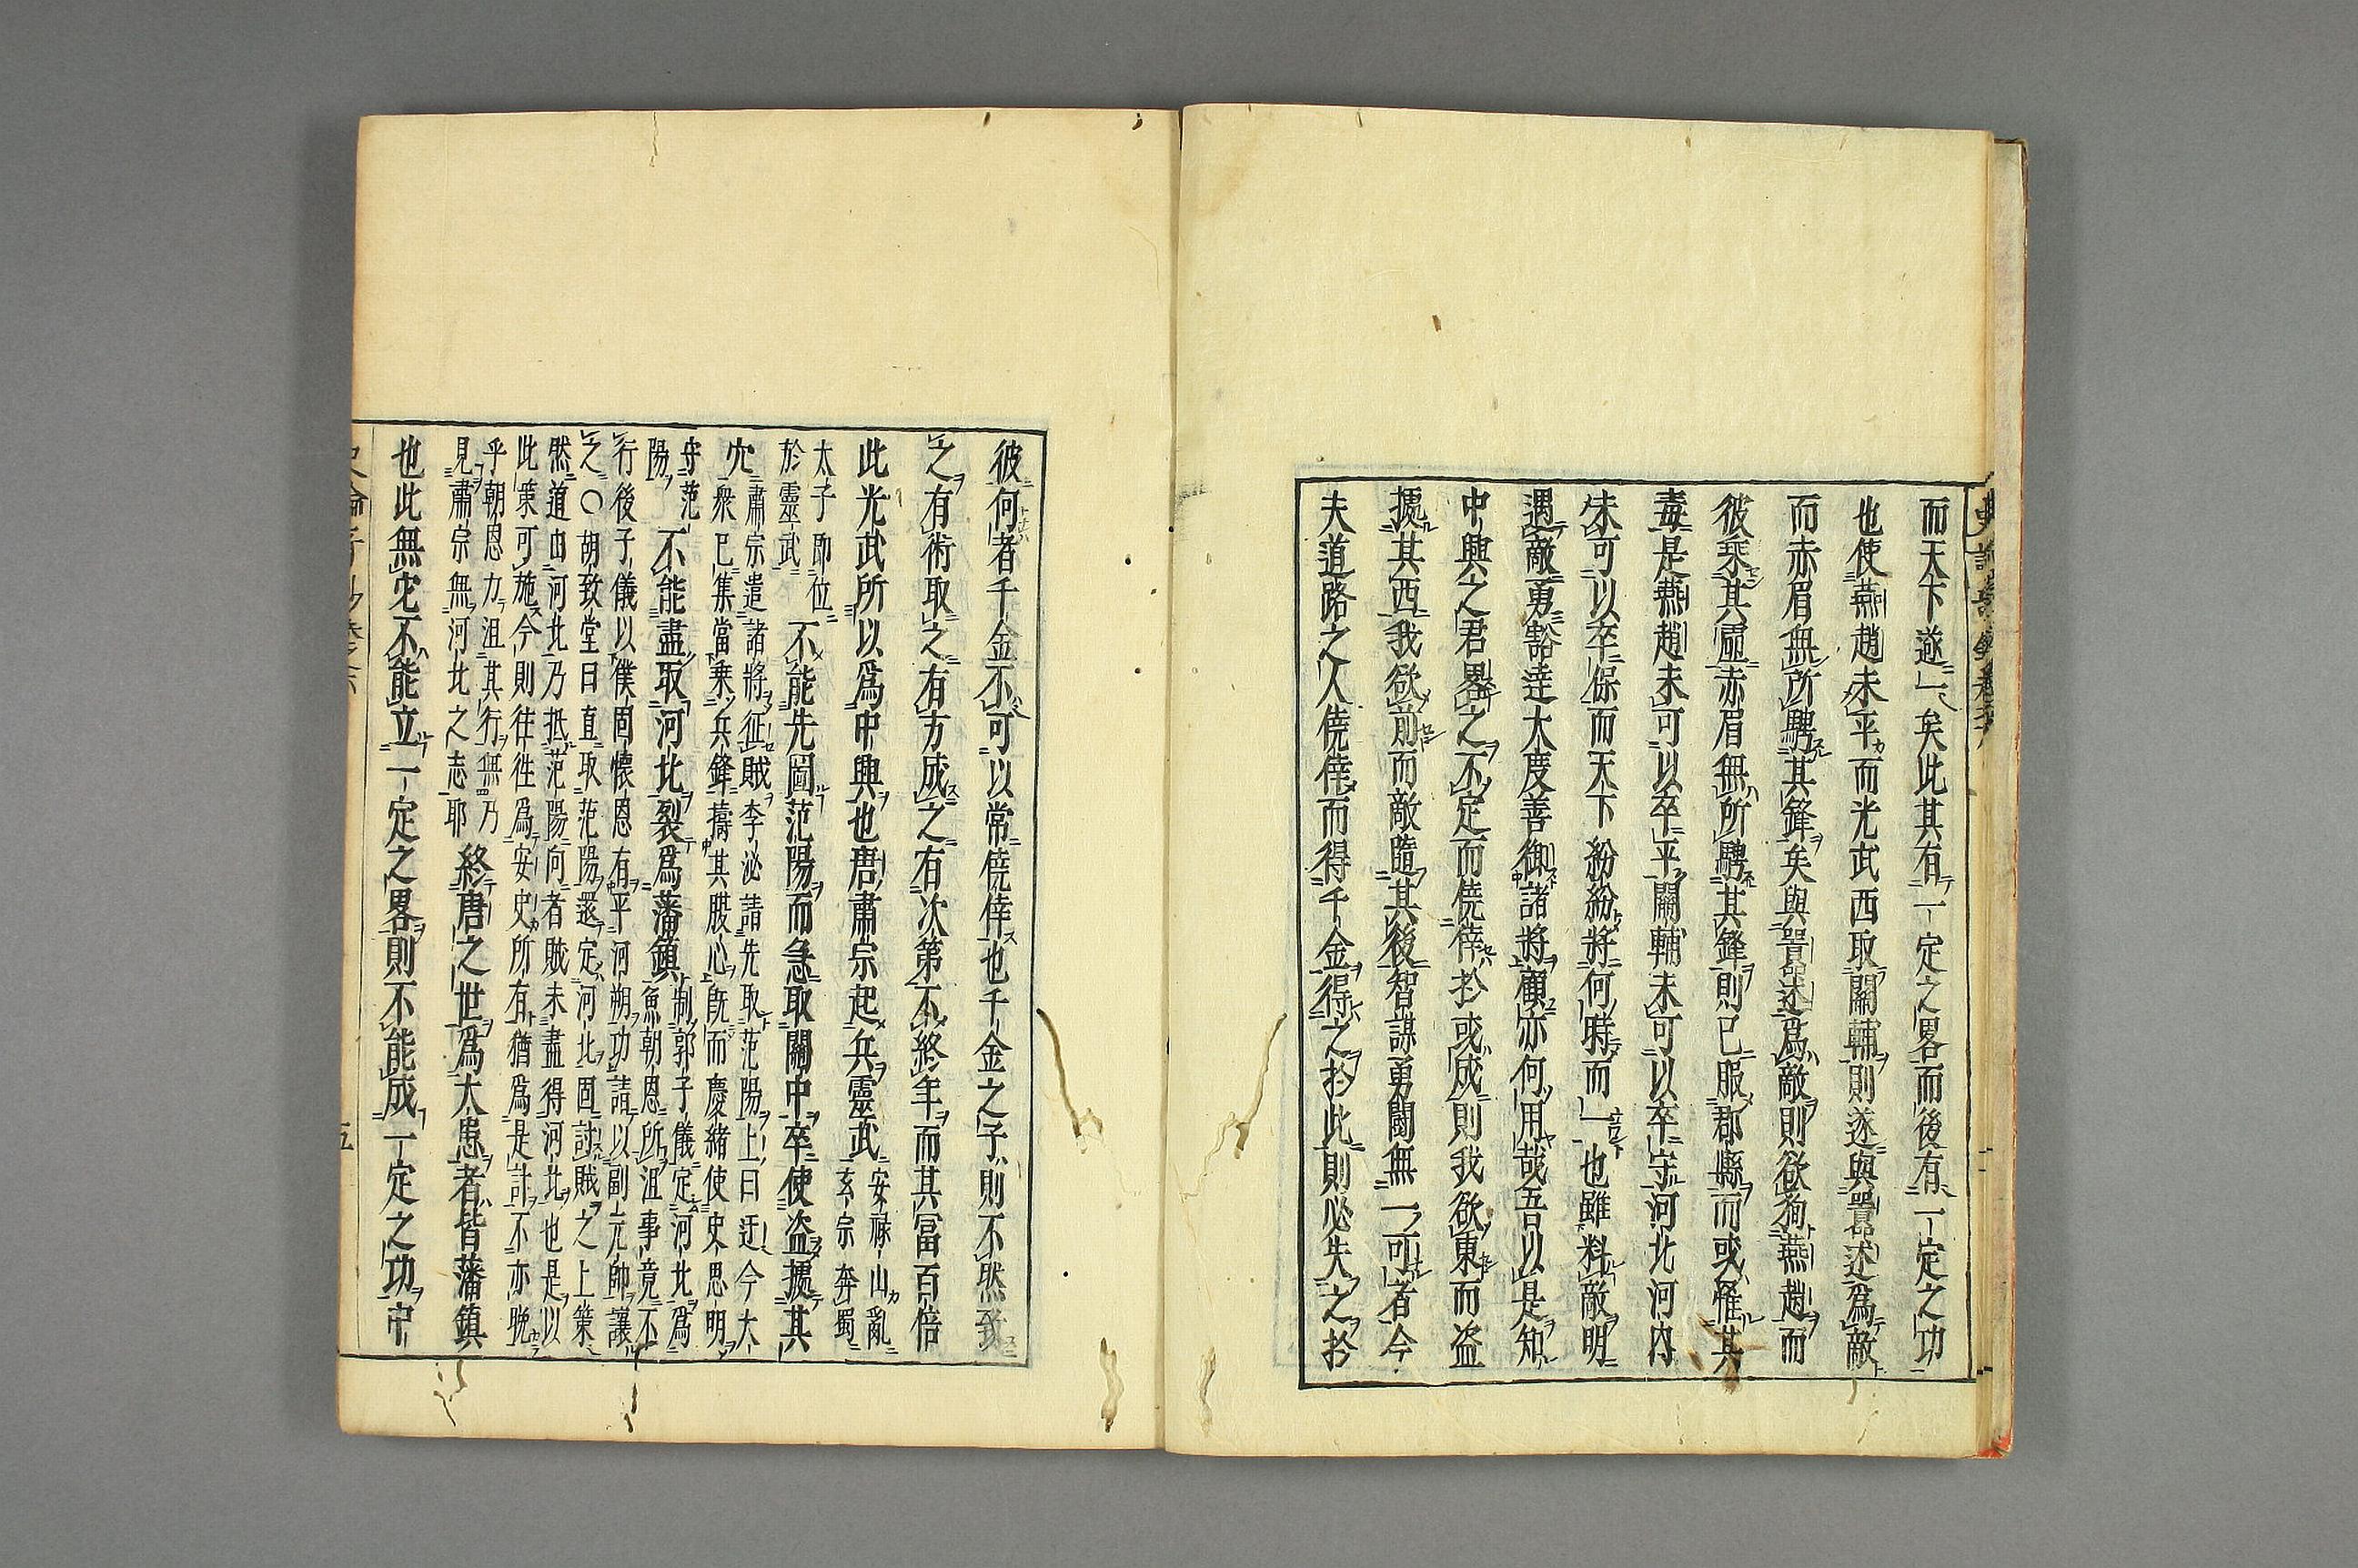 而天下遂一矣此其有一定之畧而後有一定之功
也使燕趙未平而光武西取關輔則遂與囂述爲敵
而赤眉無所騁其鋒矣與囂述爲敵則欲狥燕趙而
彼乘其虛赤眉無所騁其鋒則已服郡縣而或罹其
毒是燕趙未可以卒平關輔未可以卒守河北河内
未可以卒保而天下紛紛將何時而一也雖料敵明
遇敵勇豁達大度善御諸將顧亦何用哉吾以是知
中興之君畧之不定而僥倖於或成則我欲東而盗
擾其西我欲前而敵隨其後智謀勇鬪無一可者今
夫道路之人僥倖而得千金得之於此則必失之於
彼何者千金不可以常僥倖也千金之子則不然致
之有術取之有方成之有次第不終年而其冨百倍
此光武所以爲中興也唐肅宗起兵靈武安祿山亂玄宗奔蜀
太子即位於靈武不能先圖范陽而急取關中卒使盗擾其
穴肅宗遣諸將征賊李泌請先取范陽上曰迂今大衆已集當乘兵鋒擣其腹心旣而慶緒使史思明
守范陽不能盡取河北裂爲藩鎮制郭子儀定河北爲魚朝恩所沮事竟不
行後子儀以僕固懷恩有平河朔功請以副元帥讓之〇胡致堂曰直取范陽還定河北固討賊之上策
然道由河北乃抵范陽向者賊未盡得河北也是以此策可施今則往徃爲安史所有猶爲是計不亦晩
乎朝恩力沮其行無乃見肅宗無河北之志耶終唐之世爲大患者皆藩鎮
也此無它不能立一定之畧則不能成一定之功中
五